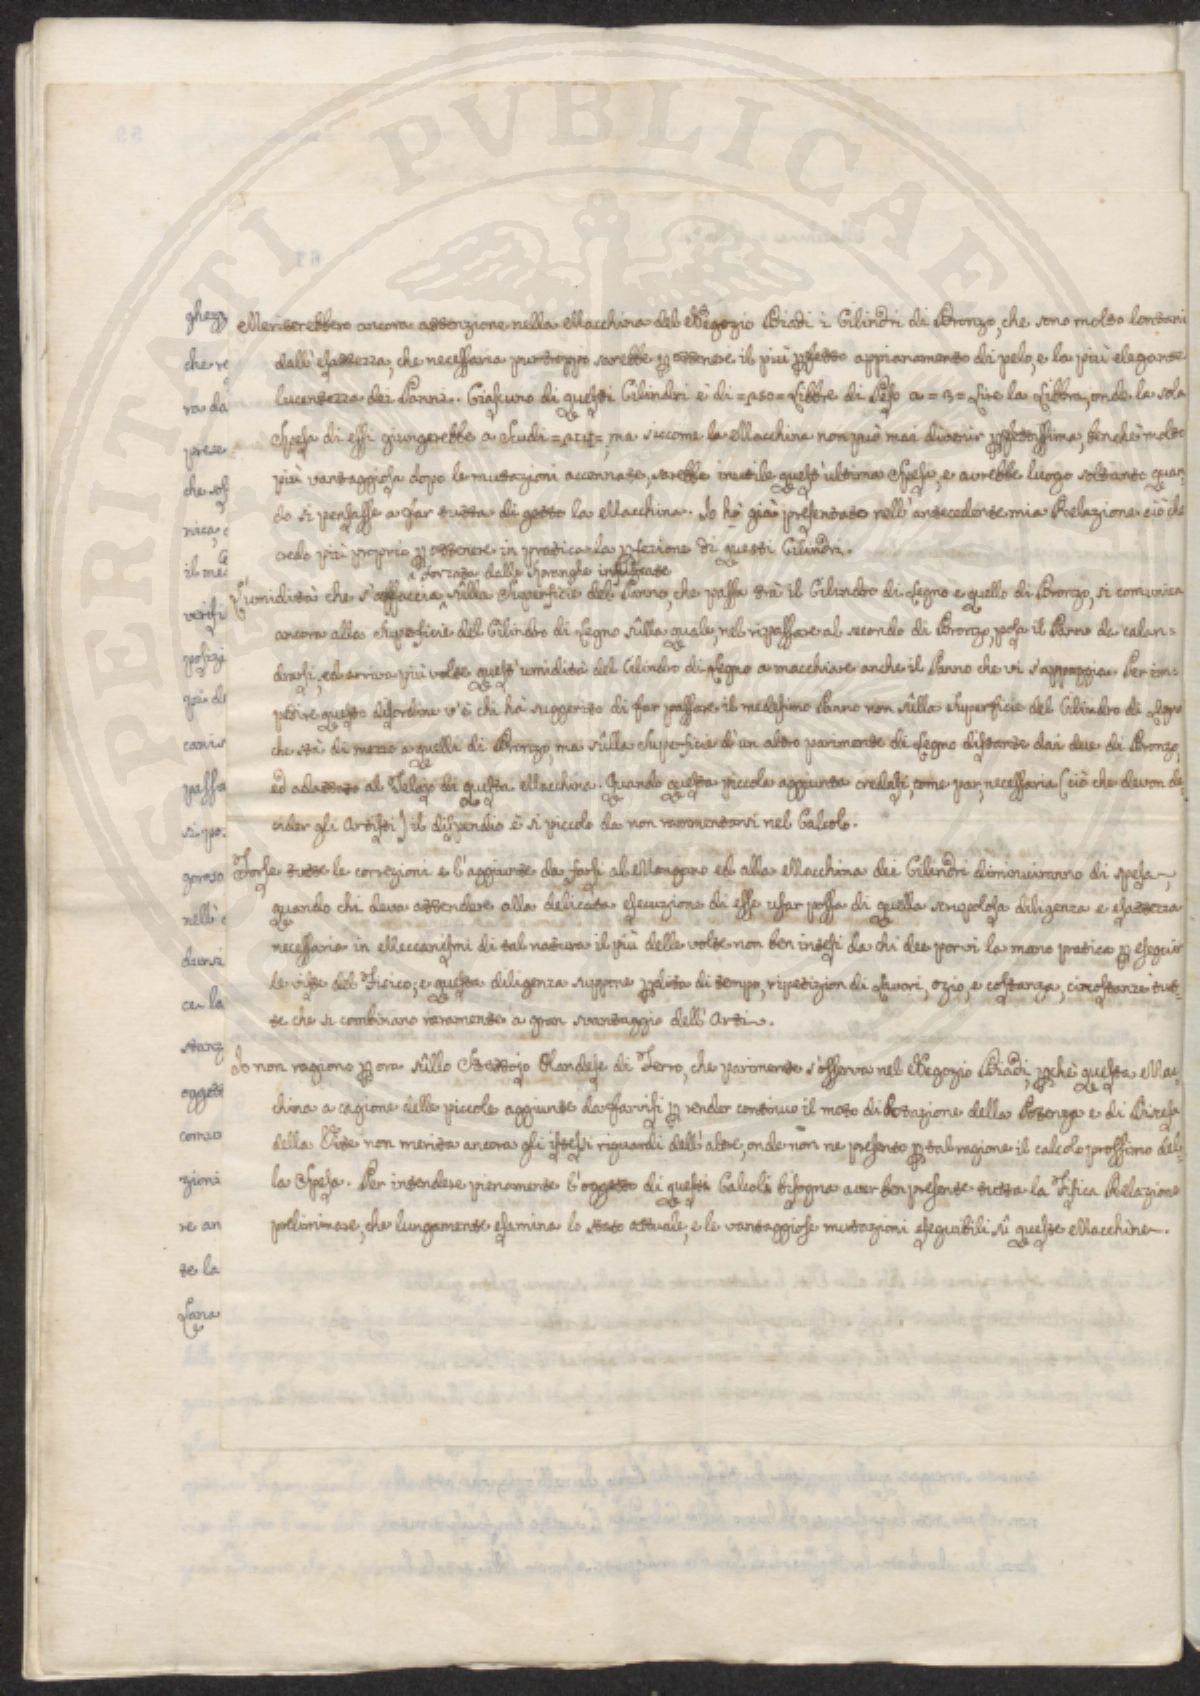 Meriterebbero ancora attenzione nella Macchina del Negozio Biadi i Cilindri di Bronzo, che sono molto lontani
dall'esattezza, che necessaria purtroppo sarebbe p ottenere il più pfetto appianamento di pelo, e la più elegante
lucentezza dei Panni. Ciascuno di questi Cilindri è di =150= Libbre di Peso a =3= Lire la Libbra, onde la sola
Spesa di essi giungerebbe a Scudi ma siccome la Macchina non può mai divenir pfettissima, benchè molto
più vantaggiosa dopo le mutazioni accennate, sarebbe inutile quest'ultima Spesa, e avrebbe luogo soltanto quan-
do si pensasse a far tutta di getto la Macchina. Io hò già presentato nell'antecedente mia Relazione ciò che
credo più proprio p ottenere in pratica la pfezione di questi Cilindri.
forzata dalle Spranghe infuocate
L'umidità che s'affaccia sûlla Superficie del Panno, che passa trà il Cilindro di Legno e quello di Bronzo, si comunica
ancora alla Superficie del Cilindro di Legno sûlla quale, nel ripassare al secondo di Bronzo, posa il Panno da calan=
drarsi, ed arriva più volte quest'umidità del Cilindro di Legno a macchiare anche il Panno che vi s'appoggia. Per im=
pedire questo disordine v'è chi hà suggerito di far passare il medesimo Panno non sûlla Superficie del Cilindro di Legno
che stà di mezzo a quelli di Bronzo, ma sûlla Superficie d'un altro parimente di Legno distante dai due di Bronzo,
ed adattato al Telajo di questa Macchina. Quando questa piccola aggiunta credasi, come par, necessaria (ciò che devon de
cider gli Artisti) il dispendio è si piccolo da non rammentarsi nel Calcolo.
Forse tutte le correzioni e l'aggiunte da farsi al Mangano ed alla Macchina dei Cilindri diminuiranno di spesa,
quando chi deva attendere alla delicata esecuzione di esse usar possa di quella scrupolosa diligenza e esattezza
necessaria in Meccanismi di tal natura il più delle volte non ben intesi da chi dee porvi la mano pratica p eseguir
le viste del Fisico; e questa diligenza suppone pdita di tempo, ripetizion di Lavori, ozio, e costanza, circostanze tut=
te che si combinano raramente a gran svantaggio dell'Arti.
Io non ragiono p ora sûllo Strettojo Olandese di Ferro, che parimente s'osserva nel Negozio Biadi, pchè questa Mac=
china a cagione delle piccole aggiunte da farvisi p render continuo il moto di Rotazione della Potenza e di Discesa
della Vite non merita ancora gli istessi riguardi dell'altre, onde non ne presento p tal ragione il calcolo prossimo del=
la Spesa. Per intendere pienamente l'oggetto di questi Calcoli bisogna aver ben presente tutta la Fisica Relazione
preliminare, che lungamente esamina lo stato attuale, e le vantaggiose mutazioni eseguibili sû queste Macchine.